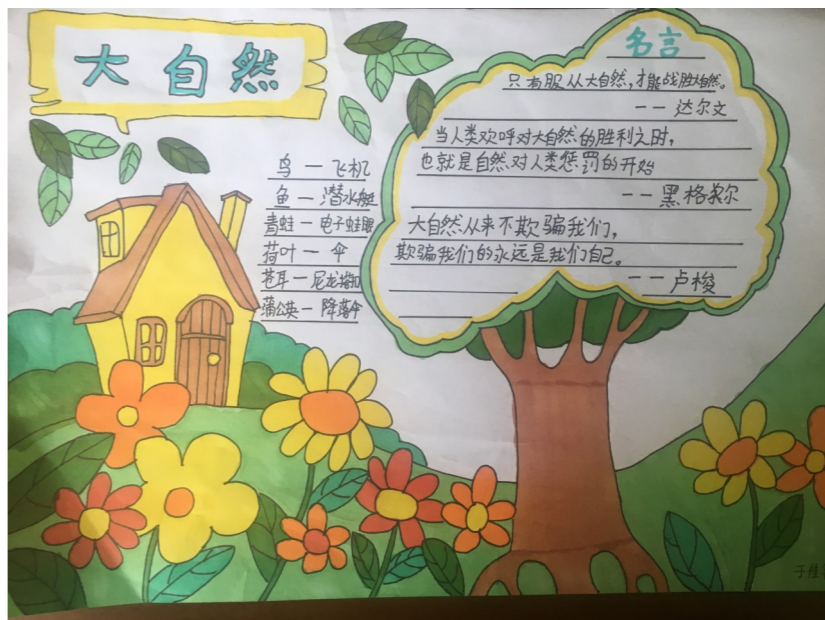 大自然
鸟一飞机
鱼一潜水艇
青蛙一电子蛙眼
荷叶一伞
苍耳一尼龙搭扣
蒲公英一降落伞
名言
只有服从大自然,才能战胜大自然。
——达尔文
当人类欢呼对大自然的胜利之时,
也就是自然对人类惩罚的开始
——黑格尔
大自然从来不欺骗我们,
欺骗我们的永远是我们自己。
——卢梭